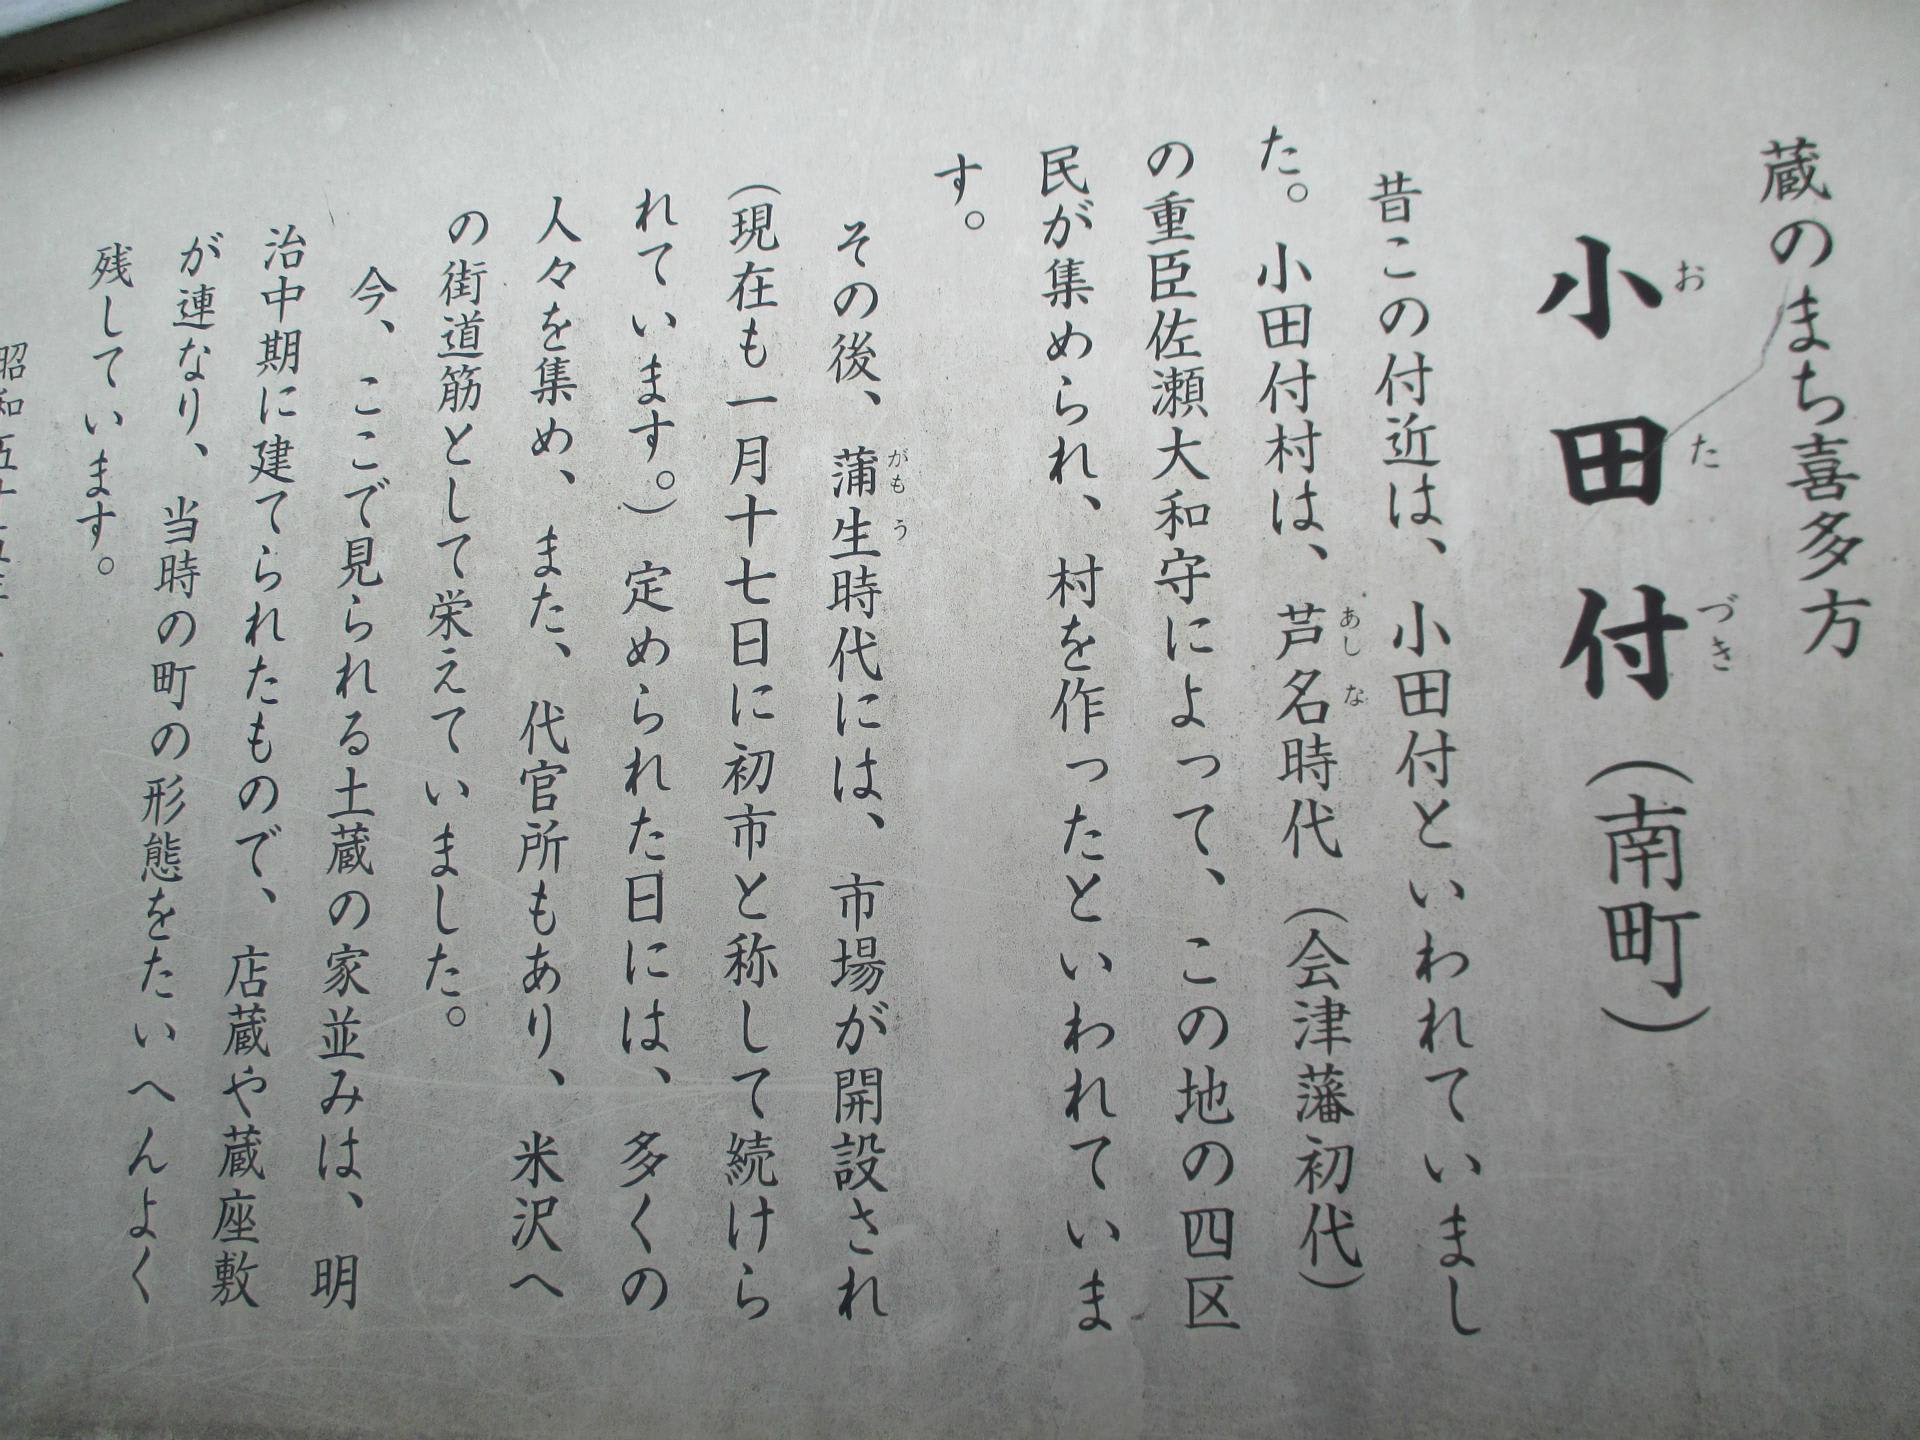 蔵のまち喜多方
小田付（南町）
おたづき
昔この付近は、小田付といわれていまし
た。小田付村は、芦名時代（会津藩初代）
あしな
の重臣佐瀬大和守によって、この地の四区
民が集められ、村を作ったといわれていま
す。
その後、蒲生時代には、市場が開設され
がもう
（現在も一月十七日に初市と称して続けら
れています。）定められた日には、多くの
人々を集め、また、代官所もあり、米沢へ
の街道筋として栄えていました。
今、ここで見られる土蔵の家並みは、明
治中期に建てられたもので、店蔵や蔵座敷
が連なり、当時の町の形態をたいへんよく
残しています。
昭和五十五年